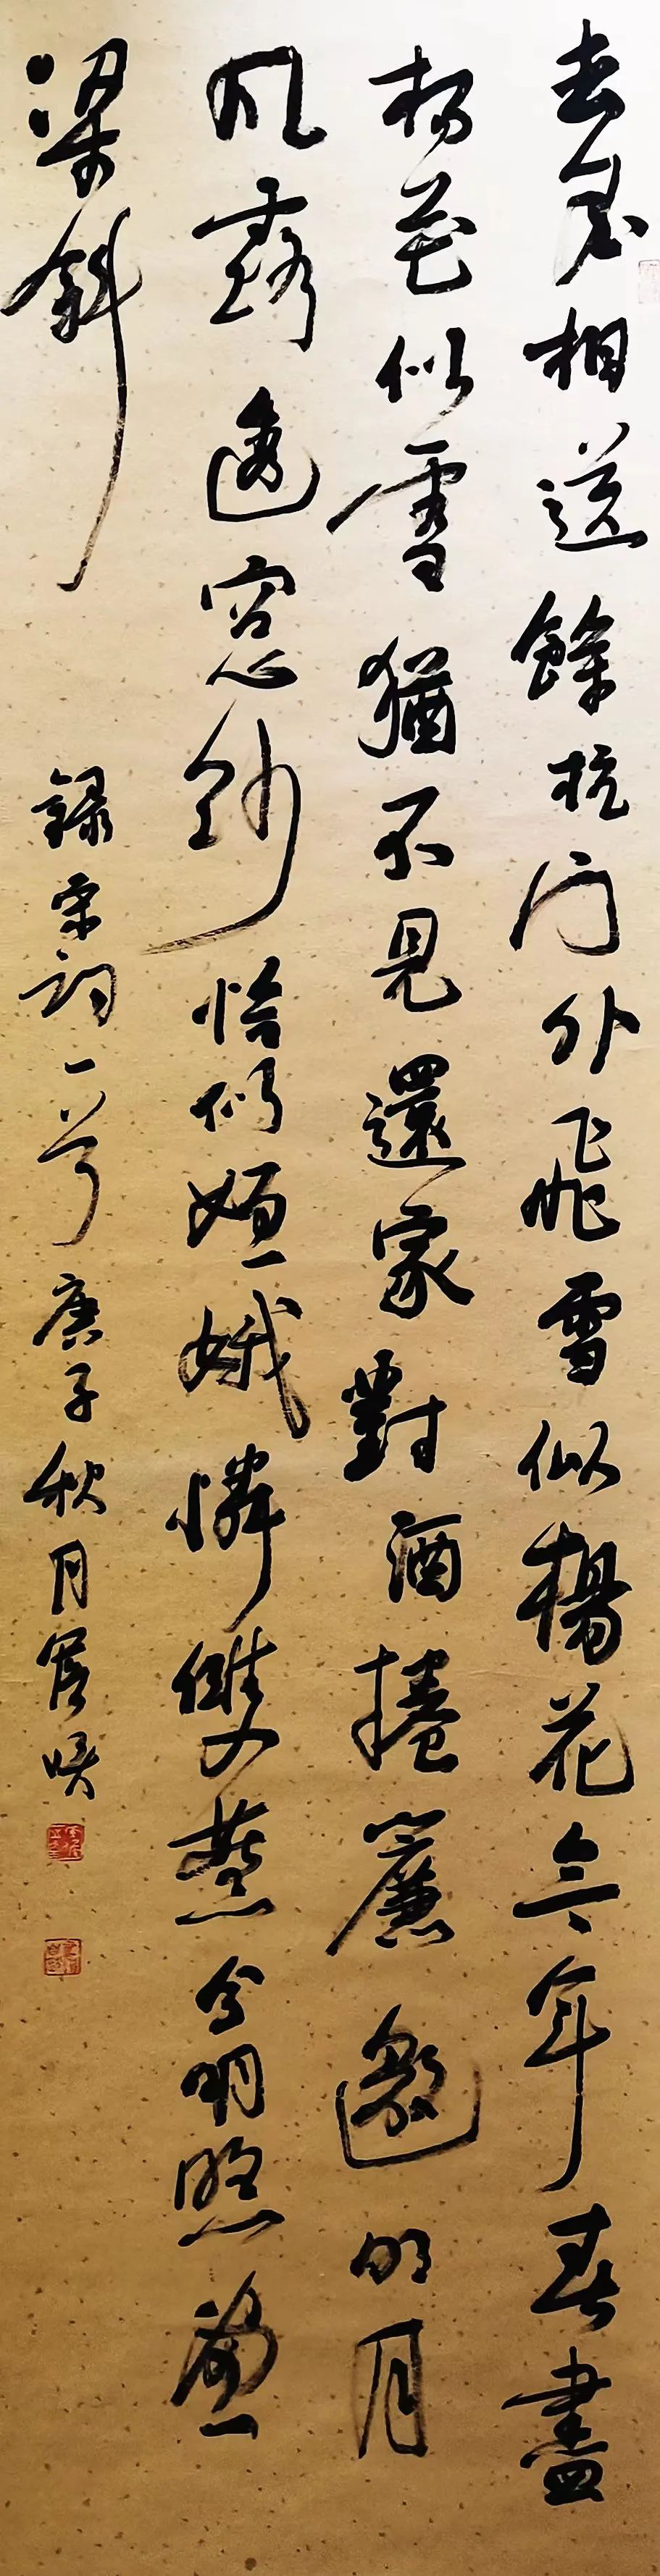 去年相送餘杭门外飛雪似楊花今年春盡
杨花似雪猶不見還家對酒捲簾邀明月
风露透窓紗恰似姮娥憐雙燕分明照畫
梁斜
録宋词一首庚子秋月